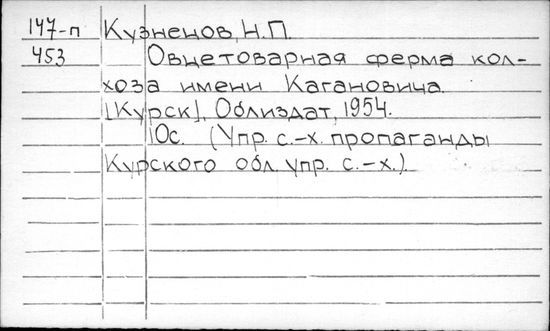 147-п Кузнецов, Н.П.
453 Овцетоварная ферма кол-
хоза имени Кагановича.
[Курск], Облиздат, 1954.
10с. (Упр. с.-х. пропаганды
Курского обл. упр. с.-х.).